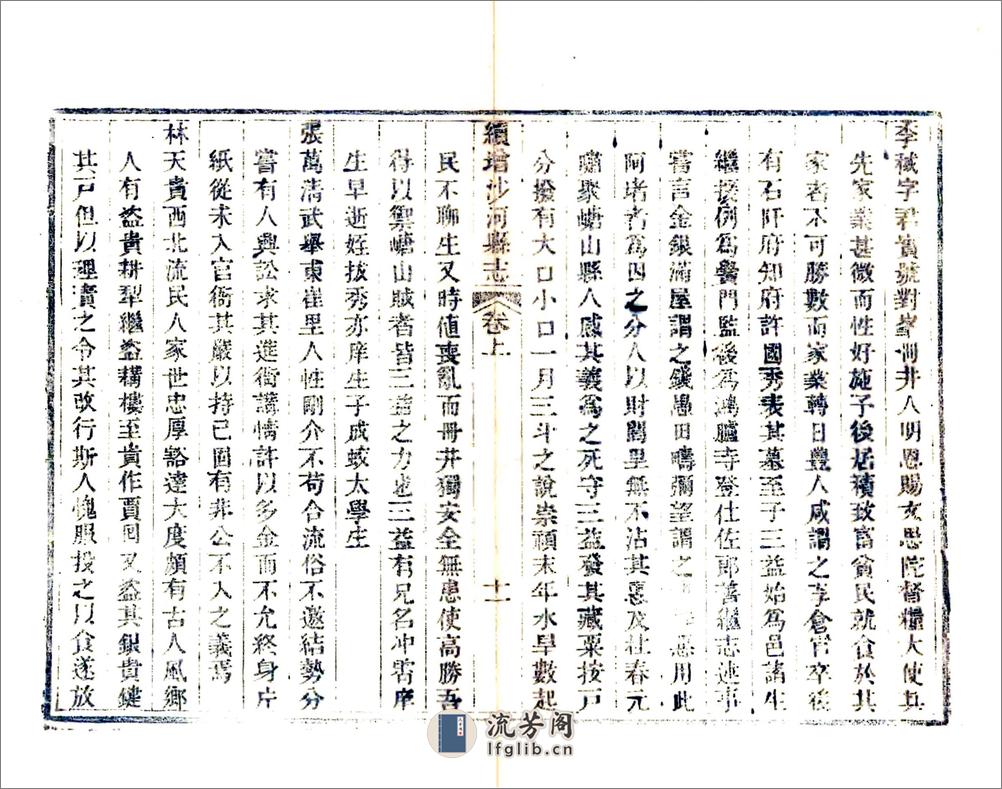 李棫字君實號對峯冊井人明恩賜文思院督糧大使其
先家業甚微而性好施予後居積致富貧民就食於其
家者不可勝數而家業轉日豐人咸謂之李倉官卒後
有石阡府知府許國秀表其墓至子三益始為邑諸生
繼援例為黌門監後為鴻臚寺登仕佐郎善繼志述事
嘗言金銀滿屋謂之錢愚田疇彌望謂之 愚用此
阿堵者為四之分人以財閭里無不沾其惠及杜春元
嘯聚螗山縣人感其義為之死守三益發其藏粟按戶
分撥有大口小口一月三斗之說崇禎末年水旱數起
續增沙河縣志 卷上 十一
民不聊生又時值喪亂而冊井獨安全無患使高勝吾
得以禦螗山賊者皆三益之力也三益有兄名冲霄庠
生早逝姪拔秀亦庠生子成蛟太學生
張萬清武舉東崔里人性剛介不苟合流俗不邀結勢分
嘗有人興訟求其進衙講情許以多金而不允終身片
紙從未入官衙其嚴以持己固有非公不入之義焉
林天貴西北流民人家世忠厚豁達大度頗有古人風鄉
人有盜貴耕犁繼盜耩耬至貴作賈囘又盜其銀貴鍵
其戶但以理責之令其改行斯人愧服投之以食遂放